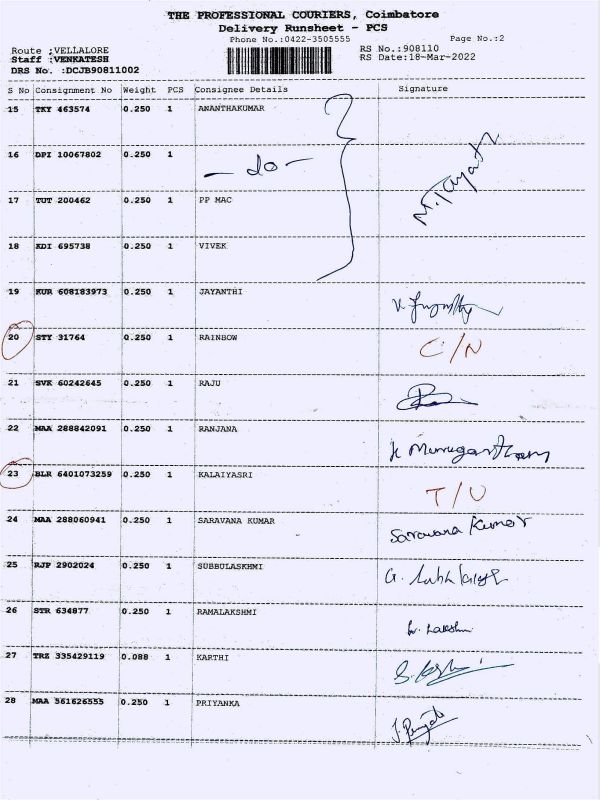 THE PROFESSIONAL COURIERS, Coimbatore
Delivery Runsheet - PCS
Phone No.:0422-3505555 Page No.:2
Route :VELLALORE RS No.:908110
Staff :VENKATESH RS Date:18-Mar-2022
DRS No. :DCJB90811002
S No Consignment No Weight PCS Consignee Details Signature
15 TKY 463574 0.250 1 ANANTHAKUMAR
16 DPI 10067802 0.250 1 - do -
17 TUT 200462 0.250 1 PP MAC
18 KDI 695738 0.250 1 VIVEK
19 KUR 608183973 0.250 1 JAYANTHI
20 STY 31764 0.250 1 RAINBOW C/N
21 SVK 60242645 0.250 1 RAJU
22 MAA 288842091 0.250 1 RANJANA
23 BLR 6401073259 0.250 1 KALAIYASRI T/U
24 MAA 288060941 0.250 1 SARAVANA KUMAR Saravana Kumar
25 RJP 2902024 0.250 1 SUBBULASKHMI
26 STR 634877 0.250 1 RAMALAKSHMI
27 TRZ 335429119 0.088 1 KARTHI
28 MAA 361626555 0.250 1 PRIYANKA